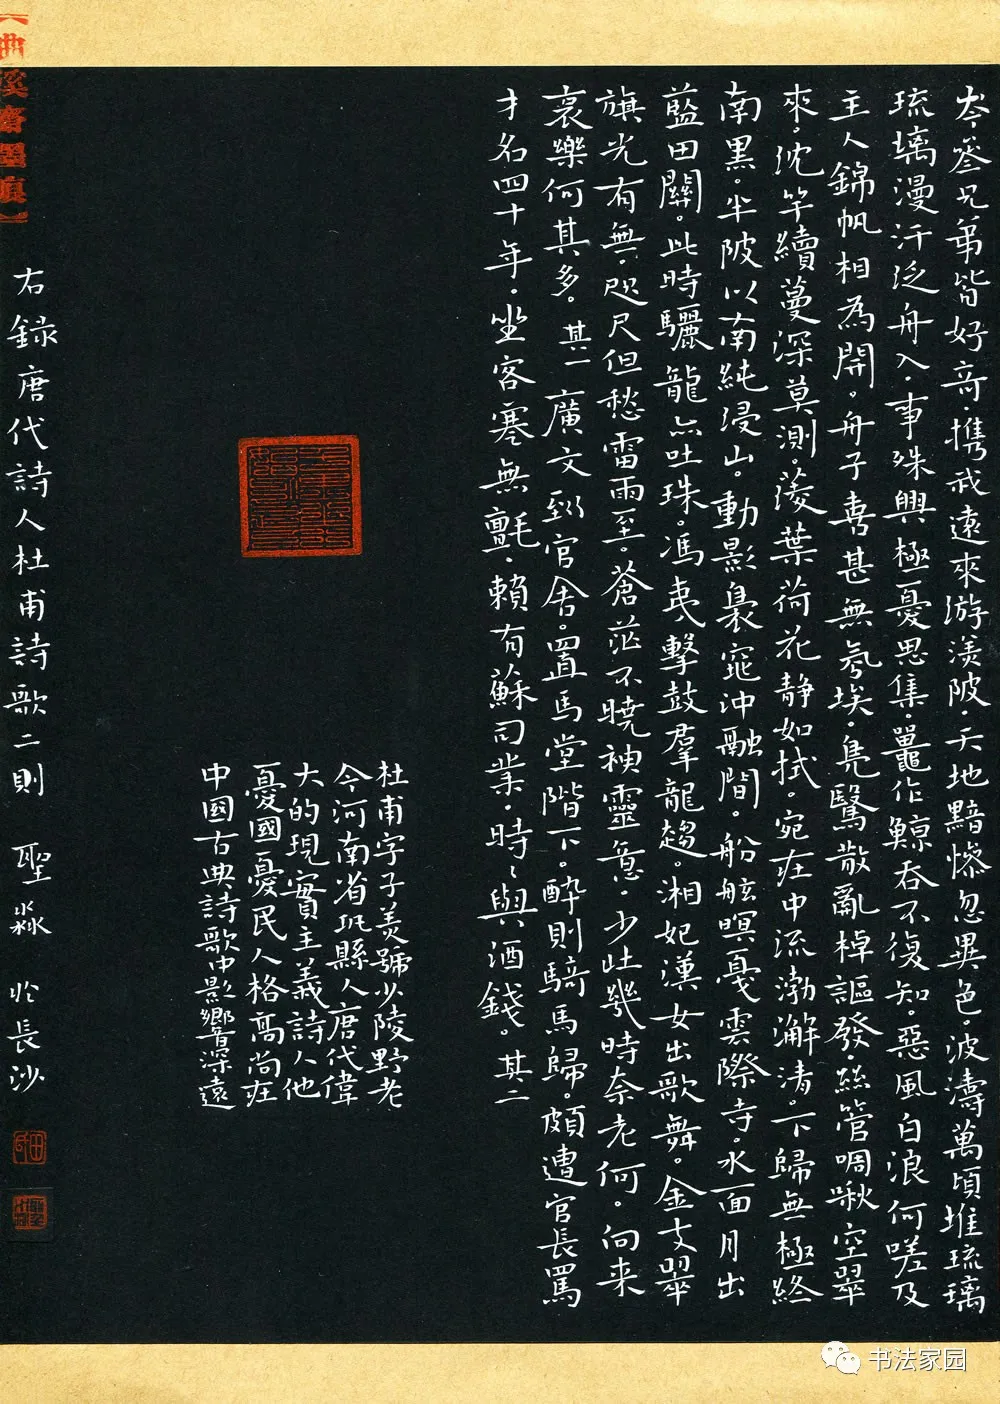 岑參兄弟皆好奇攜我遠來游渼陂天地黯慘忽異色波濤萬頃堆琉璃
琉璃漫汗泛舟入事殊興極憂思集鼉作鯨吞不復知惡風白浪何嗟及
主人錦帆相為開舟子喜甚無氛埃鳧鷖散亂棹謳發絲管啁啾空翠
來沈竿續蔓深莫測菱葉荷花靜如拭宛在中流渤澥清下歸無極終
南黑半陂以南純浸山動影裊窕沖融間船舷暝戛雲際寺水面月出
藍田關此時驪龍亦吐珠馮夷擊鼓羣龍趨湘妃漢女出歌舞金支翠
旗光有無咫尺但愁雷雨至蒼茫不曉神靈意少壯幾時奈老何向来
哀樂何其多其一廣文到官舍置馬堂階下醉則騎馬歸頗遭官長罵
才名四十年坐客寒無氈賴有蘇司業時〻與酒錢其二
杜甫字子美號少陵野老
今河南省巩縣人唐代偉
大的現實主義詩人他
憂國憂民人格高尚在
中國古典詩歌中影響深遠
右錄唐代詩人杜甫詩歌二則 聖淼 於長沙
【曲溪齋墨痕】
书法家园